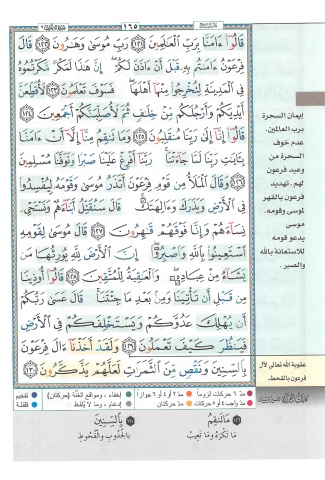 ١٦٥
قَالُوٓا۟ ءَامَنَّا بِرَبِّ ٱلْعَٰلَمِينَ ١٢١ رَبِّ مُوسَىٰ وَهَٰرُونَ ١٢٢ قَالَ
فِرْعَوْنُ ءَامَنتُم بِهِۦ قَبْلَ أَنْ ءَاذَنَ لَكُمْ ۖ إِنَّ هَٰذَا لَمَكْرٌ مَّكَرْتُمُوهُ
فِى ٱلْمَدِينَةِ لِتُخْرِجُوا۟ مِنْهَآ أَهْلَهَا ۖ فَسَوْفَ تَعْلَمُونَ ١٢٣ لَأُقَطِّعَنَّ
أَيْدِيَكُمْ وَأَرْجُلَكُم مِّنْ خِلَٰفٍ ثُمَّ لَأُصَلِّبَنَّكُمْ أَجْمَعِينَ ١٢٤
قَالُوٓا۟ إِنَّآ إِلَىٰ رَبِّنَا مُنقَلِبُونَ ١٢٥ وَمَا تَنقِمُ مِنَّآ إِلَّآ أَنْ ءَامَنَّا
بِـَٔايَٰتِ رَبِّنَا لَمَّا جَآءَتْنَا ۚ رَبَّنَآ أَفْرِغْ عَلَيْنَا صَبْرًا وَتَوَفَّنَا مُسْلِمِينَ
١٢٦ وَقَالَ ٱلْمَلَأُ مِن قَوْمِ فِرْعَوْنَ أَتَذَرُ مُوسَىٰ وَقَوْمَهُۥ لِيُفْسِدُوا۟
فِى ٱلْأَرْضِ وَيَذَرَكَ وَءَالِهَتَكَ ۚ قَالَ سَنُقَتِّلُ أَبْنَآءَهُمْ وَنَسْتَحْىِۦ
نِسَآءَهُمْ وَإِنَّا فَوْقَهُمْ قَٰهِرُونَ ١٢٧ قَالَ مُوسَىٰ لِقَوْمِهِ
ٱسْتَعِينُوا۟ بِٱللَّهِ وَٱصْبِرُوٓا۟ ۖ إِنَّ ٱلْأَرْضَ لِلَّهِ يُورِثُهَا مَن
يَشَآءُ مِنْ عِبَادِهِۦ ۖ وَٱلْعَٰقِبَةُ لِلْمُتَّقِينَ ١٢٨ قَالُوٓا۟ أُوذِينَا
مِن قَبْلِ أَن تَأْتِيَنَا وَمِنۢ بَعْدِ مَا جِئْتَنَا ۚ قَالَ عَسَىٰ رَبُّكُمْ
أَن يُهْلِكَ عَدُوَّكُمْ وَيَسْتَخْلِفَكُمْ فِى ٱلْأَرْضِ
فَيَنظُرَ كَيْفَ تَعْمَلُونَ ١٢٩ وَلَقَدْ أَخَذْنَآ ءَالَ فِرْعَوْنَ
بِٱلسِّنِينَ وَنَقْصٍ مِّنَ ٱلثَّمَرَٰتِ لَعَلَّهُمْ يَذَّكَّرُونَ ١٣٠
إيمان السحرة
برب العالمين.
عدم خوف
السحرة من
وعيد فرعون
لهم. تهديد
فرعون بالقهر
لموسى وقومه.
موسى
يدعو قومه
للاستعانة بالله
والصبر.
عقوبة الله تعالى لآل
فرعون بالقحط.
مدّ ٦ حركات لزوماً مدّ ٢ أو ٤ أو ٦ جوازاً
مدّ واجب ٤ أو ٥ حركات مدّ حركتان
إخفاء، ومواقع الغُنّة (حركتان)
إدغام، وما لا يُلفَظ
تفخيم
قلقلة
مَا تَنقِمُ
مَا تَكْرَهُ وَمَا تَعِيبُ
بِالسِّنِينَ
بِالْجُدُوبِ وَالْقُحُوطِ